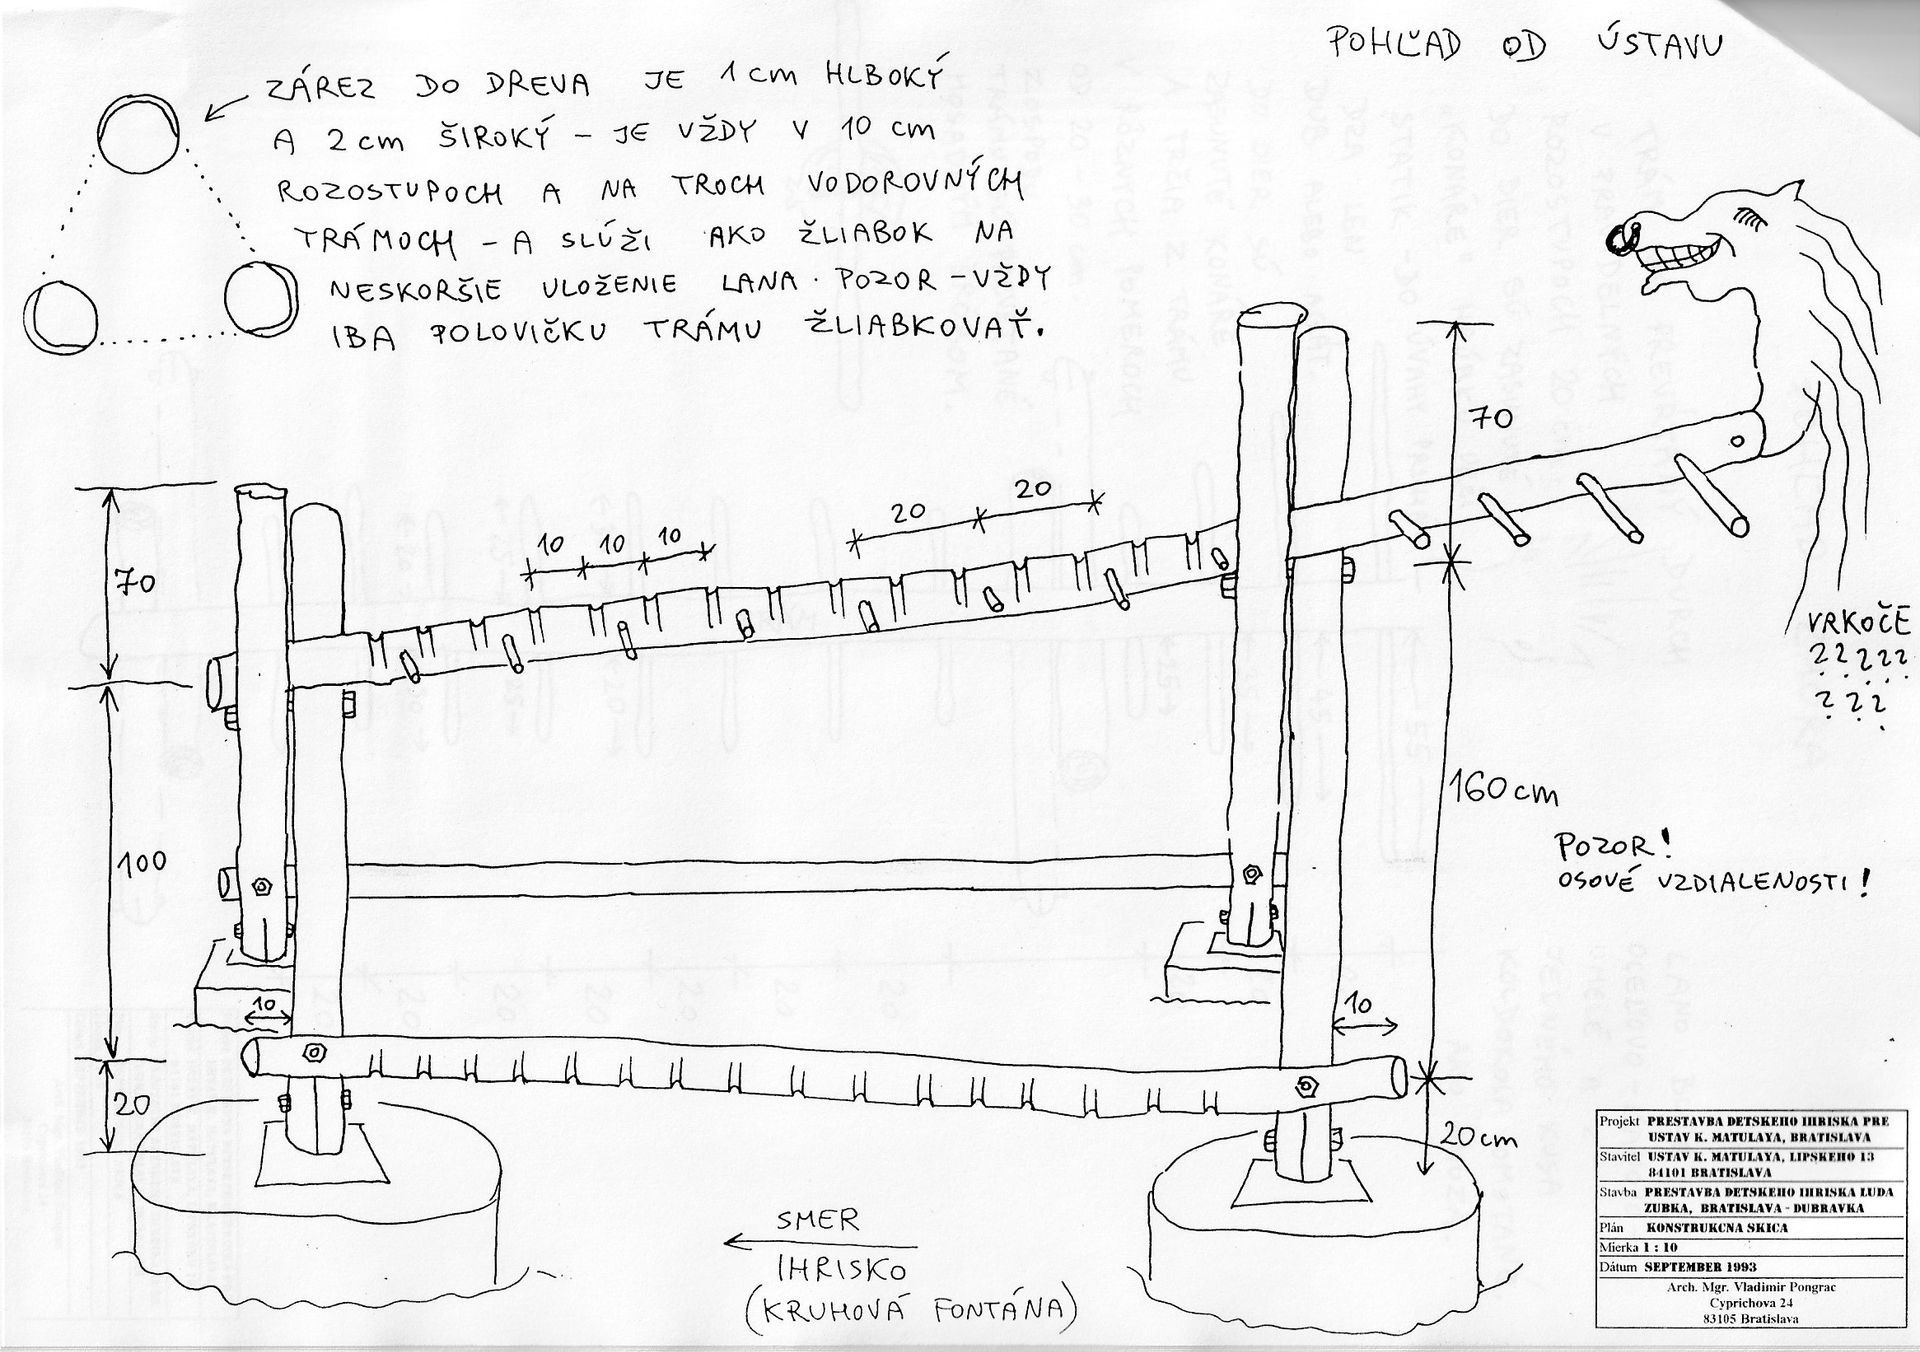 POHĽAD OD ÚSTAVU
ZÁREZ DO DREVA JE 1 cm HLBOKÝ
A 2 cm ŠIROKÝ - JE VŽDY V 10 cm
ROZOSTUPOCH A NA TROCH VODOROVNÝCH
TRÁMOCH - A SLÚŽI AKO ŽLIABOK NA
NESKORŠIE ULOŽENIE LANA. POZOR - VŽDY
IBA POLOVIČKU TRÁMU ŽLIABKOVAŤ.
70
20
20
10 10 10
70
VRKOČE
?????
???
160 cm
POZOR!
OSOVÉ VZDIALENOSTI!
100
10
10
20
20 cm
SMER
IHRISKO
(KRUHOVÁ FONTÁNA)
Projekt PRESTAVBA DETSKEHO IHRISKA PRE
USTAV K. MATULAYA, BRATISLAVA
Stavitel USTAV K. MATULAYA, LIPSKEHO 13
84101 BRATISLAVA
Stavba PRESTAVBA DETSKEHO IHRISKA LUDA
ZUBKA, BRATISLAVA - DUBRAVKA
Plán KONSTRUKCNA SKICA
Mierka 1 : 10
Dátum SEPTEMBER 1993
Arch. Mgr. Vladimir Pongrac
Cyprichova 24
83105 Bratislava